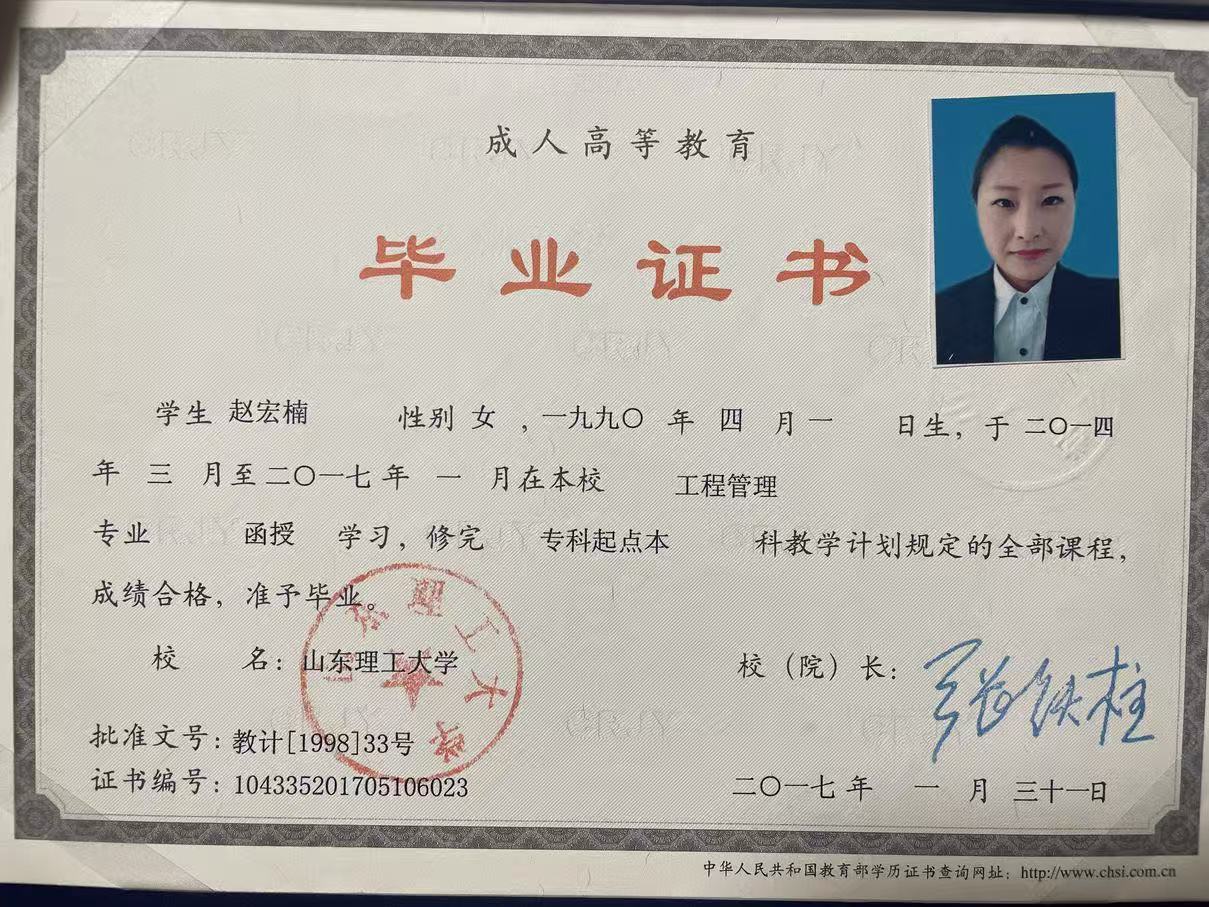 成人高等教育
毕业证书
学生 赵宏楠 性别 女 ，一九九〇 年 四 月 一 日生，于 二〇一四
年 三 月至 二〇一七 年 一 月在本校 工程管理
专业 函授 学习，修完 专科起点本 科教学计划规定的全部课程，
成绩合格，准予毕业。
校 名：山东理工大学 校（院）长：张铁柱
山东理工大学
批准文号：教计[1998]33号
证书编号：104335201705106023 二〇一七 年 一 月 三十一日
中华人民共和国教育部学历证书查询网址：http://www.chsi.com.cn